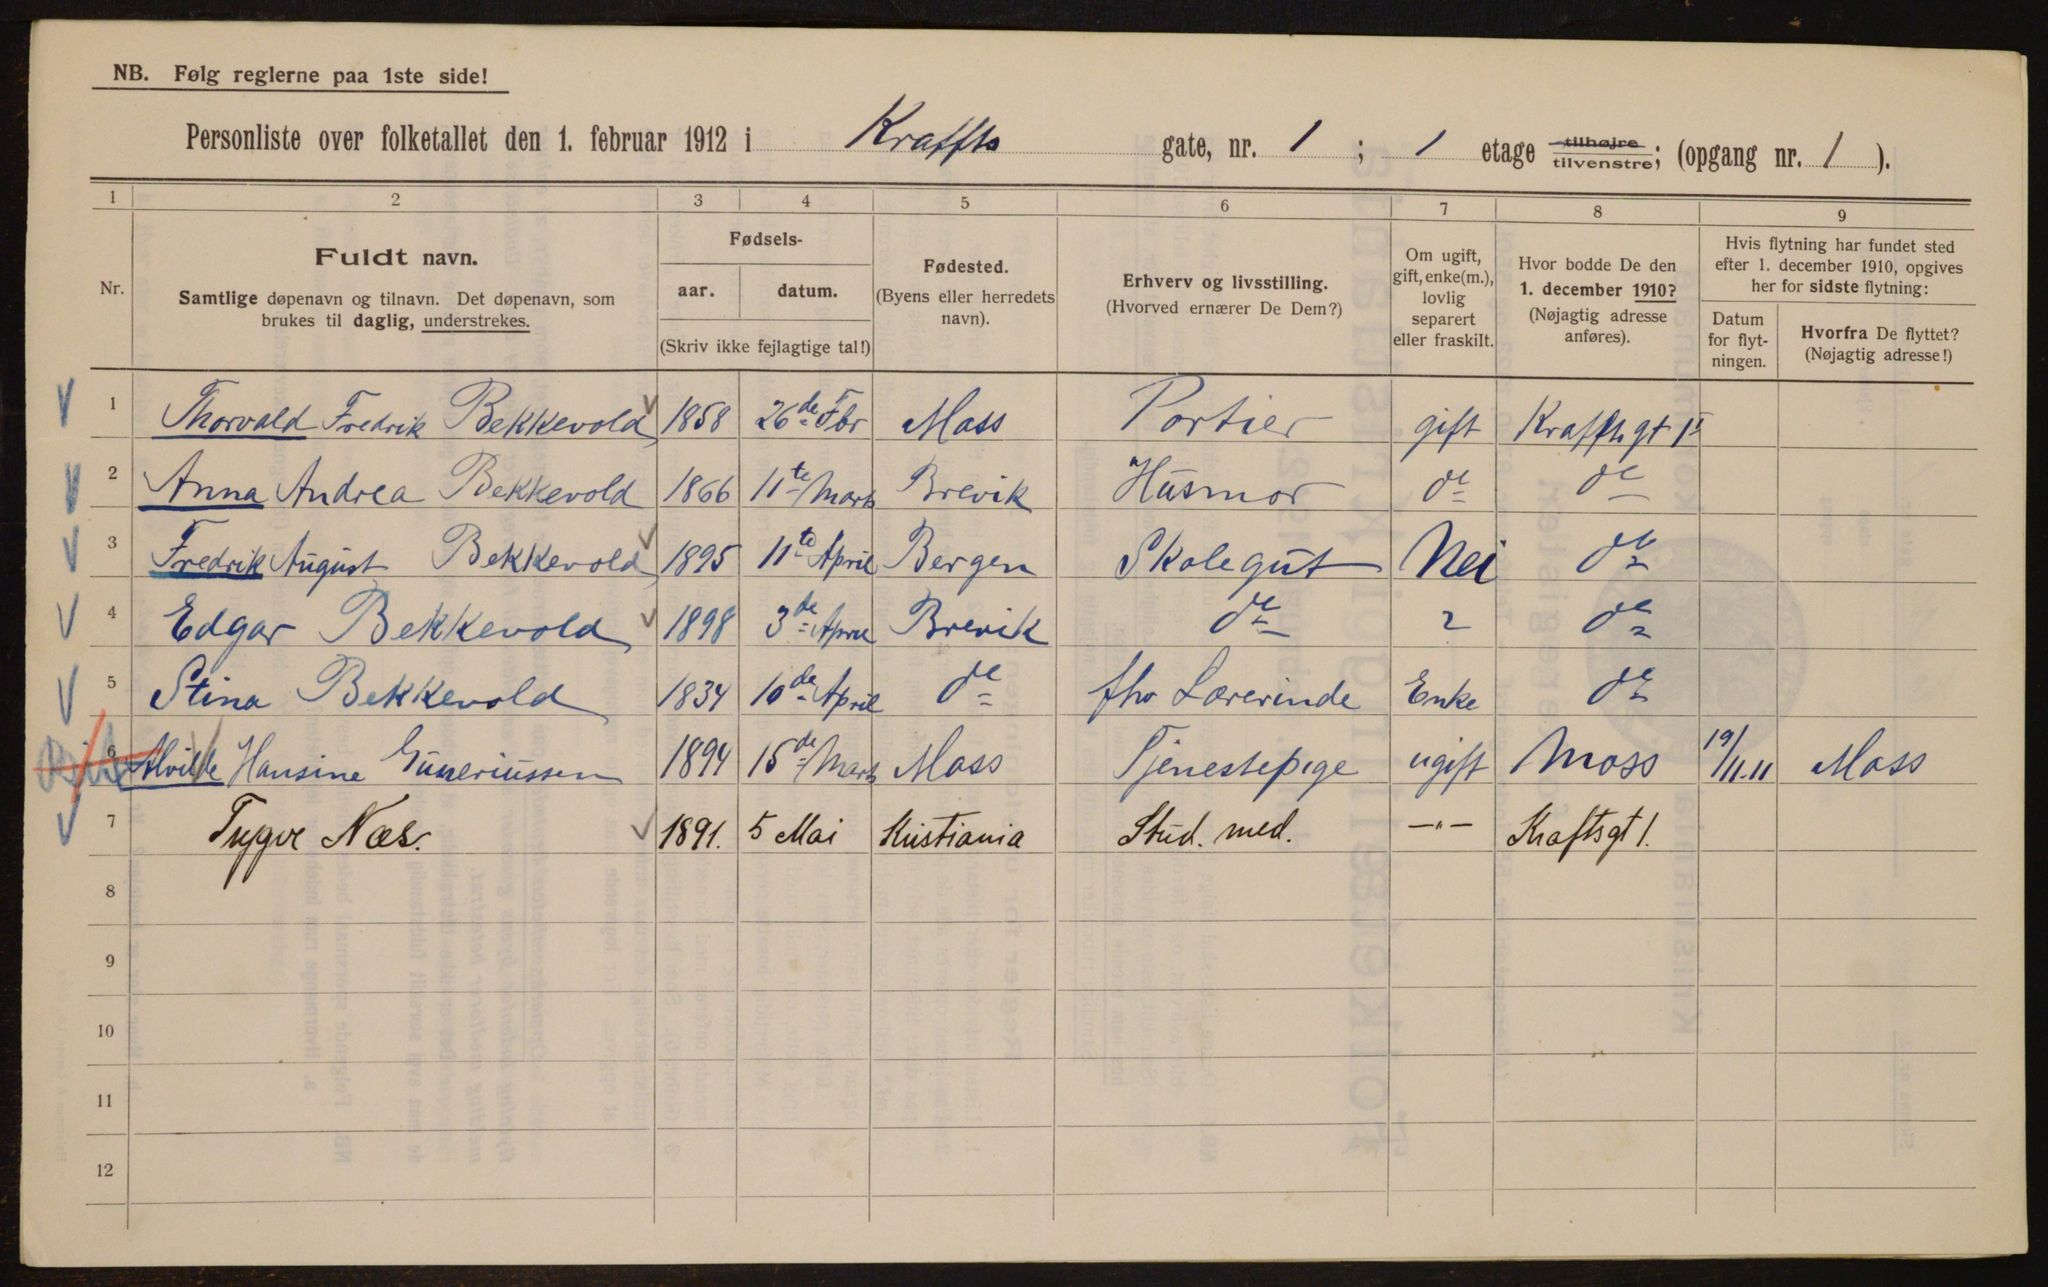 NB. Følg reglerne paa 1ste side!
Personliste over folketallet den 1. februar 1912 i Kraffts gate, nr. 1 ; 1 etage tilhøjre tilvenstre; (opgang nr. 1 ).
1 2 3 4 5 6 7 8 9
Nr.
Fuldt navn.
Samtlige døpenavn og tilnavn. Det døpenavn, som
brukes til daglig, understrekes.
Fødsels-
aar. datum.
(Skriv ikke fejlagtige tal!)
Fødested.
(Byens eller herredets
navn).
Erhverv og livsstilling.
(Hvorved ernærer De Dem?)
Om ugift,
gift, enke(m.),
lovlig
separert
eller fraskilt.
Hvor bodde De den
1. december 1910?
(Nøjagtig adresse
anføres).
Hvis flytning har fundet sted
efter 1. december 1910, opgives
her for sidste flytning:
Datum
for flyt-
ningen.
Hvorfra De flyttet?
(Nøjagtig adresse!)
1 Thorvald Fredrik Bekkevold 1858 26de Fbr Moss Portier gift Kraffts gt 1
2 Anna Andrea Bekkevold 1866 11te Marts Brevik Husmor do do
3 Fredrik August Bekkevold 1895 11te April Bergen Skolegut Nei do
4 Edgar Bekkevold 1898 3de April Brevik do " do
5 Stina Bekkevold 1834 10de April do fhv Lærerinde Enke do
6 Alvilde Hansine Guneriussen 1894 15de Marts Moss Tjenestepige ugift Moss 19/11-11 Moss
7 Trygve Næs. 1891. 5 Mai Kristiania Stud. med. —"— Kraftsgt 1.
8
9
10
11
12